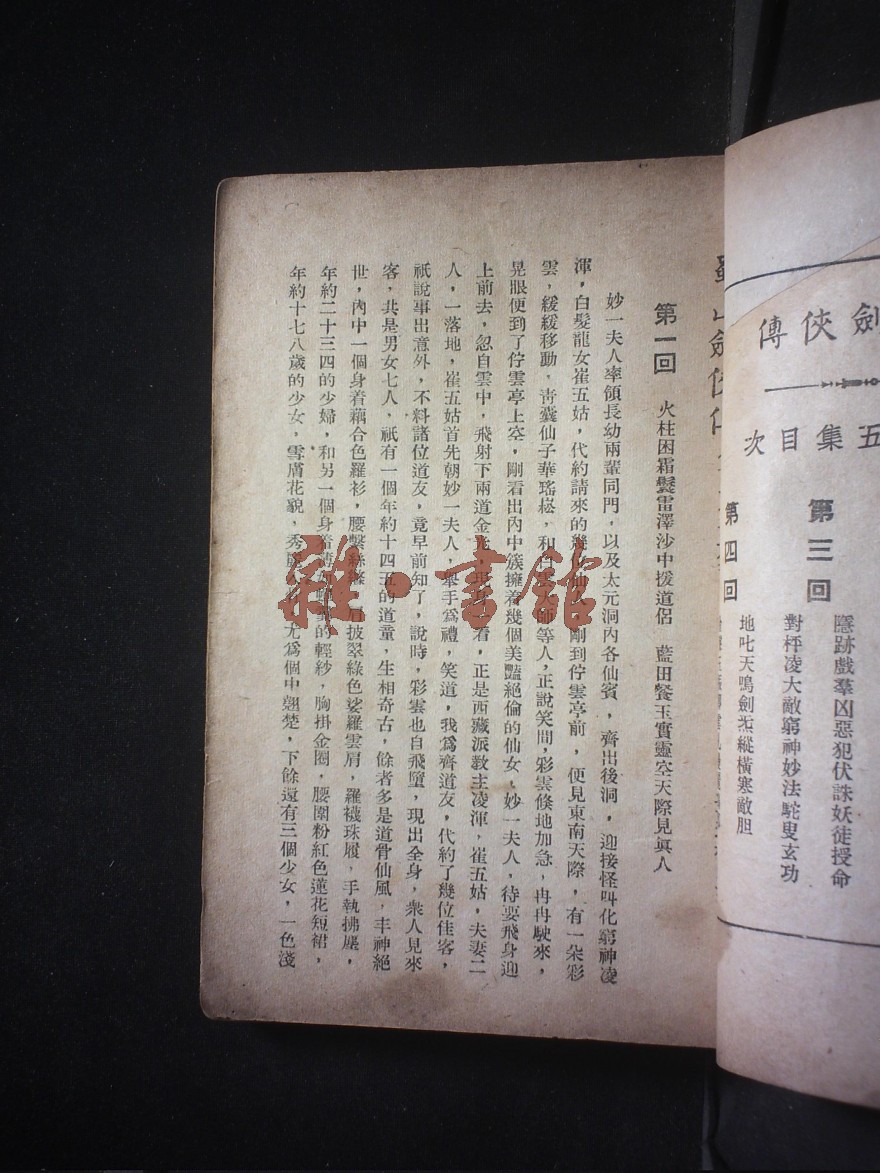 劍俠傳
五集目次
第三回
隱跡戲羣凶惡犯伏誅妖徒授命
對枰凌大敵窮神妙法駝叟玄功
第四回
地叱天鳴劍炁縱橫寒敵胆
第一回 火柱困霜鬟雷澤沙中援道侶 藍田餐玉實靈空天際見眞人
妙一夫人率領長幼兩輩同門，以及太元洞內各仙賓，齊出後洞，迎接怪叫化窮神凌
渾，白髮龍女崔五姑，代約請來的幾位仙人，剛到佇雲亭前，便見東南天際，有一朵彩
雲，緩緩移動，靑囊仙子華瑤崧，和師等人，正說笑間，彩雲倏地加急，冉冉駛來，
晃眼便到了佇雲亭上空，剛看出內中簇擁着幾個美豔絕倫的仙女，妙一夫人，待要飛身迎
上前去，忽自雲中，飛射下兩道金看，正是西藏派敎主凌渾，崔五姑，夫妻二
人，一落地，崔五姑首先朝妙一夫人，舉手爲禮，笑道，我爲齊道友，代約了幾位佳客，
祇說事出意外，不料諸位道友，竟早前知了，說時，彩雲也自飛墮，現出全身，衆人見來
客，共是男女七人，祇有一個年約十四五的道童，生相奇古，餘者多是道骨仙風，丰神絕
世，內中一個身着藕合色羅衫，腰繫絲肩披翠綠色娑羅雲肩，羅襪珠履，手執拂塵，
年約二十三四的少婦，和另一個身着的輕紗，胸掛金圈，腰圍粉紅色蓮花短裙，
年約十七八歲的少女，雪膚花貌，秀尤爲個中翹楚，下餘還有三個少女，一色淺
雜·書館